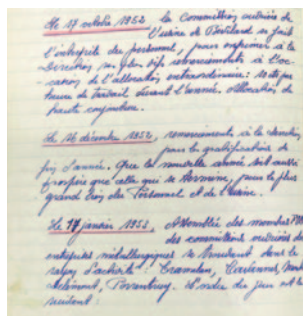 Le 17 octobre 1952 la Commission ouvrière de
l'usine de Boillard se fait
l'interprète du personnel, pour exprimer à la
Direction sa plus vive remerciements à l'oc-
casion de l'allocation extraordinaire: 10 cts par
heure de travail durant l'année. Allocation de
haute conjoncture.
Le 16 décembre 1952, remerciements à la direction
pour la gratification de
fin d'année. Que la nouvelle année soit aussi
prospère que celle qui se termine, pour le plus
grand bien du Personnel et de l'usine.
Le 17 janvier 1953, Assemblée des membres
des commissions ouvrières des
entreprises métallurgiques se trouvant dans le
rayon d'activité: Tramelan, Corgémont,
Porrentruy. L'ordre du jour est le
suivant: